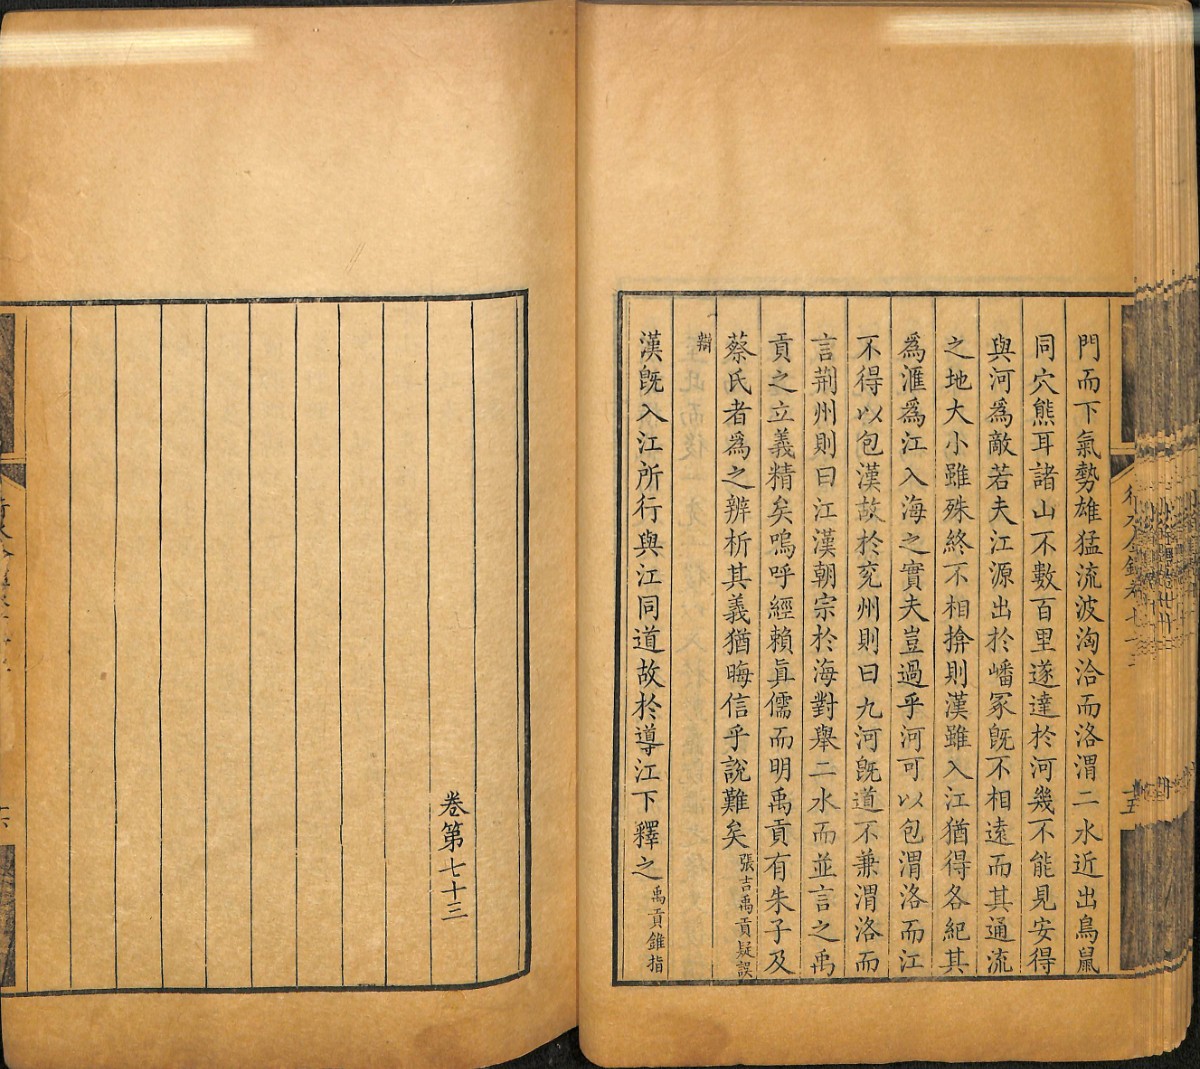 門而下氣勢雄猛流波洶洽而洛渭二水近出鳥鼠
同穴熊耳諸山不數百里遂達於河幾不能見安得
與河爲敵若夫江源出於嶓冢旣不相遠而其通流
之地大小雖殊終不相揜則漢雖入江猶得各紀其
爲滙爲江入海之實夫豈過乎河可以包渭洛而江
不得以包漢故於兖州則曰九河旣道不兼渭洛而
言荆州則曰江漢朝宗於海對舉二水而並言之禹
貢之立義精矣嗚呼經賴眞儒而明禹貢有朱子及
蔡氏者爲之辨析其義猶晦信乎說難矣張吉禹貢疑誤
辯
漢旣入江所行與江同道故於導江下釋之禹貢錐指
行水金鑑卷七十三
十五
卷第七十三